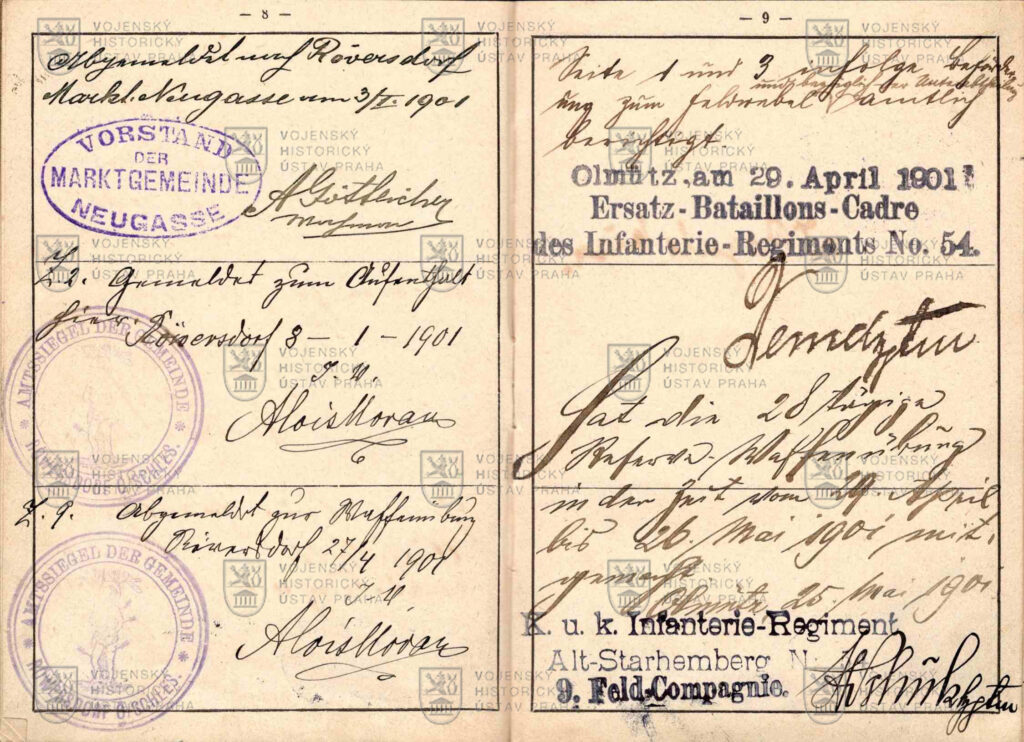 - 8 -
Abgemeldet nach Röversdorf
Markt Neugasse am 3/I. 1901
VORSTAND
DER
MARKTGEMEINDE
NEUGASSE
A Göttlicher
Z 2. Gemeldet zum Aufenthalt
hier. Röwersdorf 3 - 1 - 1901
Alois Moran
AMTSSIEGEL DER GEMEINDE
Z. 9. Abgemeldet zur Waffenübung
Röwersdorf 27/4 1901
Alois Moran
AMTSSIEGEL DER GEMEINDE
- 9 -
Seite 1 und 3 infolge Beförder
und bezüglich der Unterabtheilung
ung zum Feldwebel ämtlich
berichtigt.
Olmütz, am 29. April 1901
Ersatz-Bataillons-Cadre
des Infanterie-Regiments No. 54.
Hat die 28 tägige
Reserve-Waffenübung
in der Zeit vom 29 April
bis 26. Mai 1901 mit
gemacht.
Olmütz 25. Mai 1901
K. u. k. Infanterie-Regiment
Alt-Starhemberg N
9. Feld-Compagnie.
VOJENSKÝ
HISTORICKÝ
ÚSTAV PRAHA